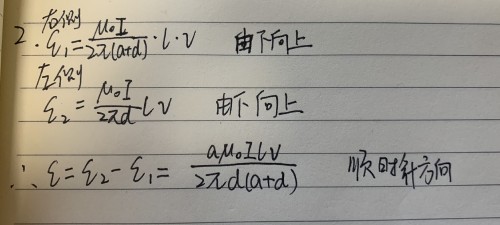 右侧
2. ε₁ = μ₀I/2π(a+d) · l · v 由下向上
左侧
ε₂ = μ₀I/2πd lv 由下向上
∴ ε = ε₂ - ε₁ = aμ₀Ilv/2πd(a+d) 顺时针方向